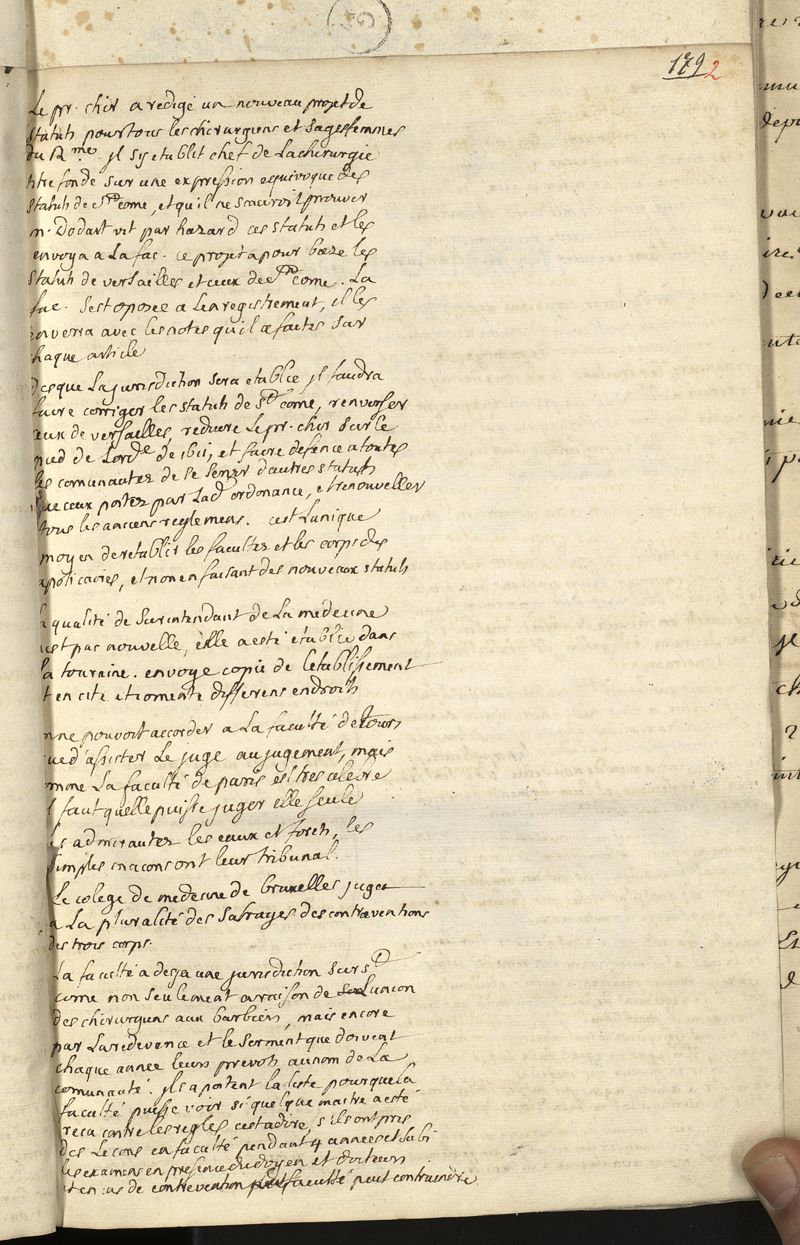 179 2
Le pr. chir a redigé un nouveau projet de
statuts pour tous les chirurgiens et sagesfemmes
du R.me. jl s'y etablit chef de La chirurgie
titre fondé sur une expression equivoque des
statuts de St come, et qu'il ne scauroit prouver
m. Dodart vit par hazard ces statuts et les
envoya a La fac. ce projet a pour baze les
statuts de versailles et ceux de St come. La
fac. s'est oposee a Lenregistrement, il les
enverra avec les notes qu'il a faites sur
chaque article
Des que La jurisdiction sera etablie jl faudra
faire corriger les statuts de St come, renverser
ceux de versailles, reduire Le pr. chir sur le
pied de Lord.e de 1611, et faire defence a toutes
les comunautez de se servir d'autres statuts
que ceux portez par Lad. ordonance, et renouveller
tous les anciens reglemens. cest Lunique
moyen de retablir les facultez et les corps des
apoticaires, et non en faisant des nouveaux statuts
la qualité de Surintendant de La medecine
nest pas nouvelle, elle a esté établie dans
La touraine. envoye copie de Letablissement
differens endroits
on ne pouvoit accorder a La faculté de Tours
que d'assister Le juge au jugement, mais
comme La faculté de paris est tres celebre
il faut quelle puisse juger elle seule
les admirautez les eaux et forets, les
simples macons ont leur tribunal.
Le colege de medecine de bruxelles juge
a La pluralité des sufrages des contraventions
des trois corps.
La faculté a desja une jurisdiction sur St
come non seulement a raison de Lunion
des chirurgiens aux barbiers, mais encore
par La redevence et le serment que doivent
chaque annee leurs prevots au nom de La
comunauté. jls aportent la liste pour que la
faculté puisse voir si quelque maitre a esté
receu contre les regles cestadire, s'ils ont pris
des Lecons en faculté pendant 4 annees et subi
les examens en presence du doyen et docteurs
et en cas de contrevention faculté peut contraindre